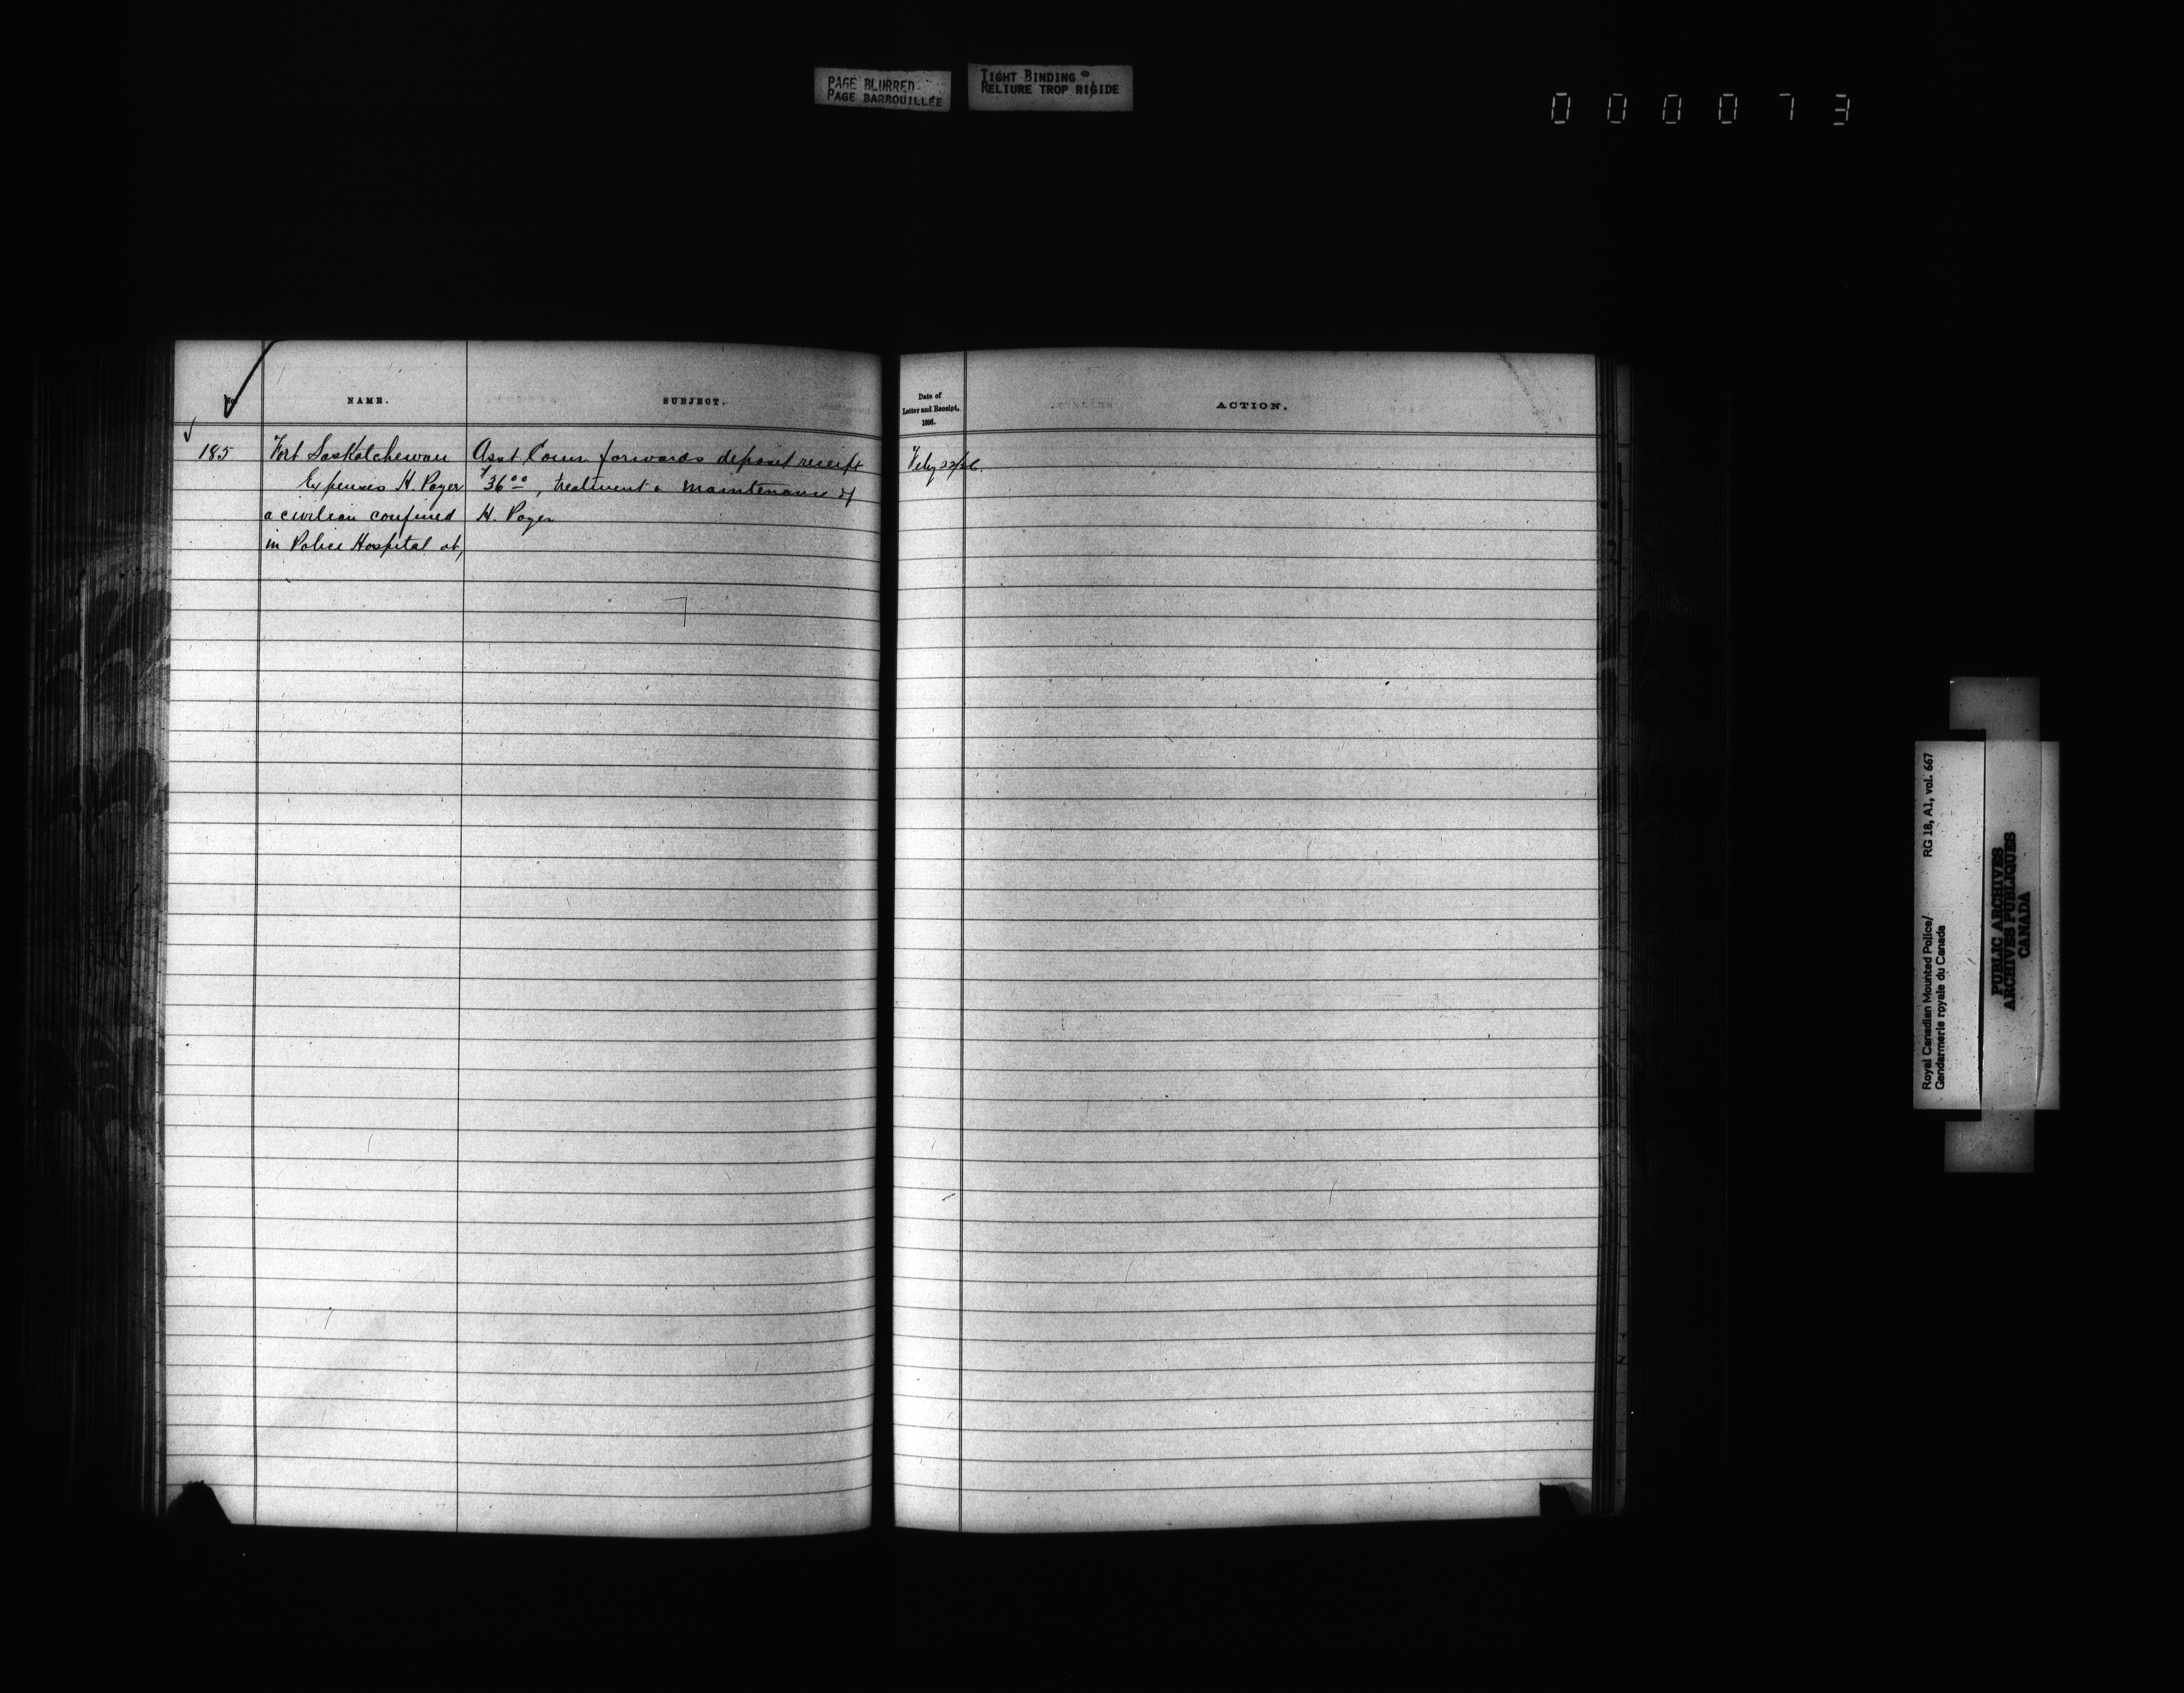 PAGE BLURRED
PAGE BARBOUILLÉE
TIGHT BINDING
RELIURE TROP RIGIDE
000073
No.
NAME.
SUBJECT.
Date of
Letter and Receipt,
1896.
ACTION.
185
Fort Saskatchewan
Expenses H. Payer
a civilian confined
in Police Hospital at,
Asst Comr forwards deposit receipt
$36.00, treatment & maintenance of
H. Payer
Feby 22/26.
Royal Canadian Mounted Police/
Gendarmerie royale du Canada
RG 18, A1, vol. 667
PUBLIC ARCHIVES
ARCHIVES PUBLIQUES
CANADA